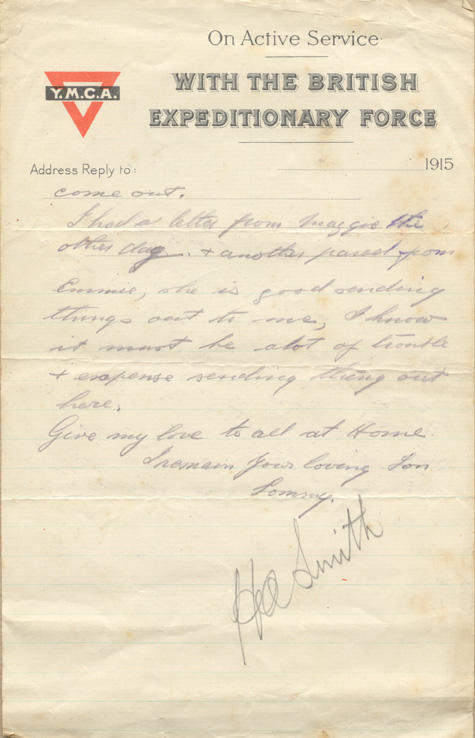 On Active Service
WITH THE BRITISH
Y.M.C.A.
EXPEDITIONARY FORCE
Address Reply to: 1915
come out.
I had a letter from Maggie the
other day. + another parcel from
Emmie, she is good sending
things out to me, I know
it must be alot of trouble
+ expense sending thing out
here.
Give my love to all at Home.
I remain Your loving Son
Tommy.
Smith